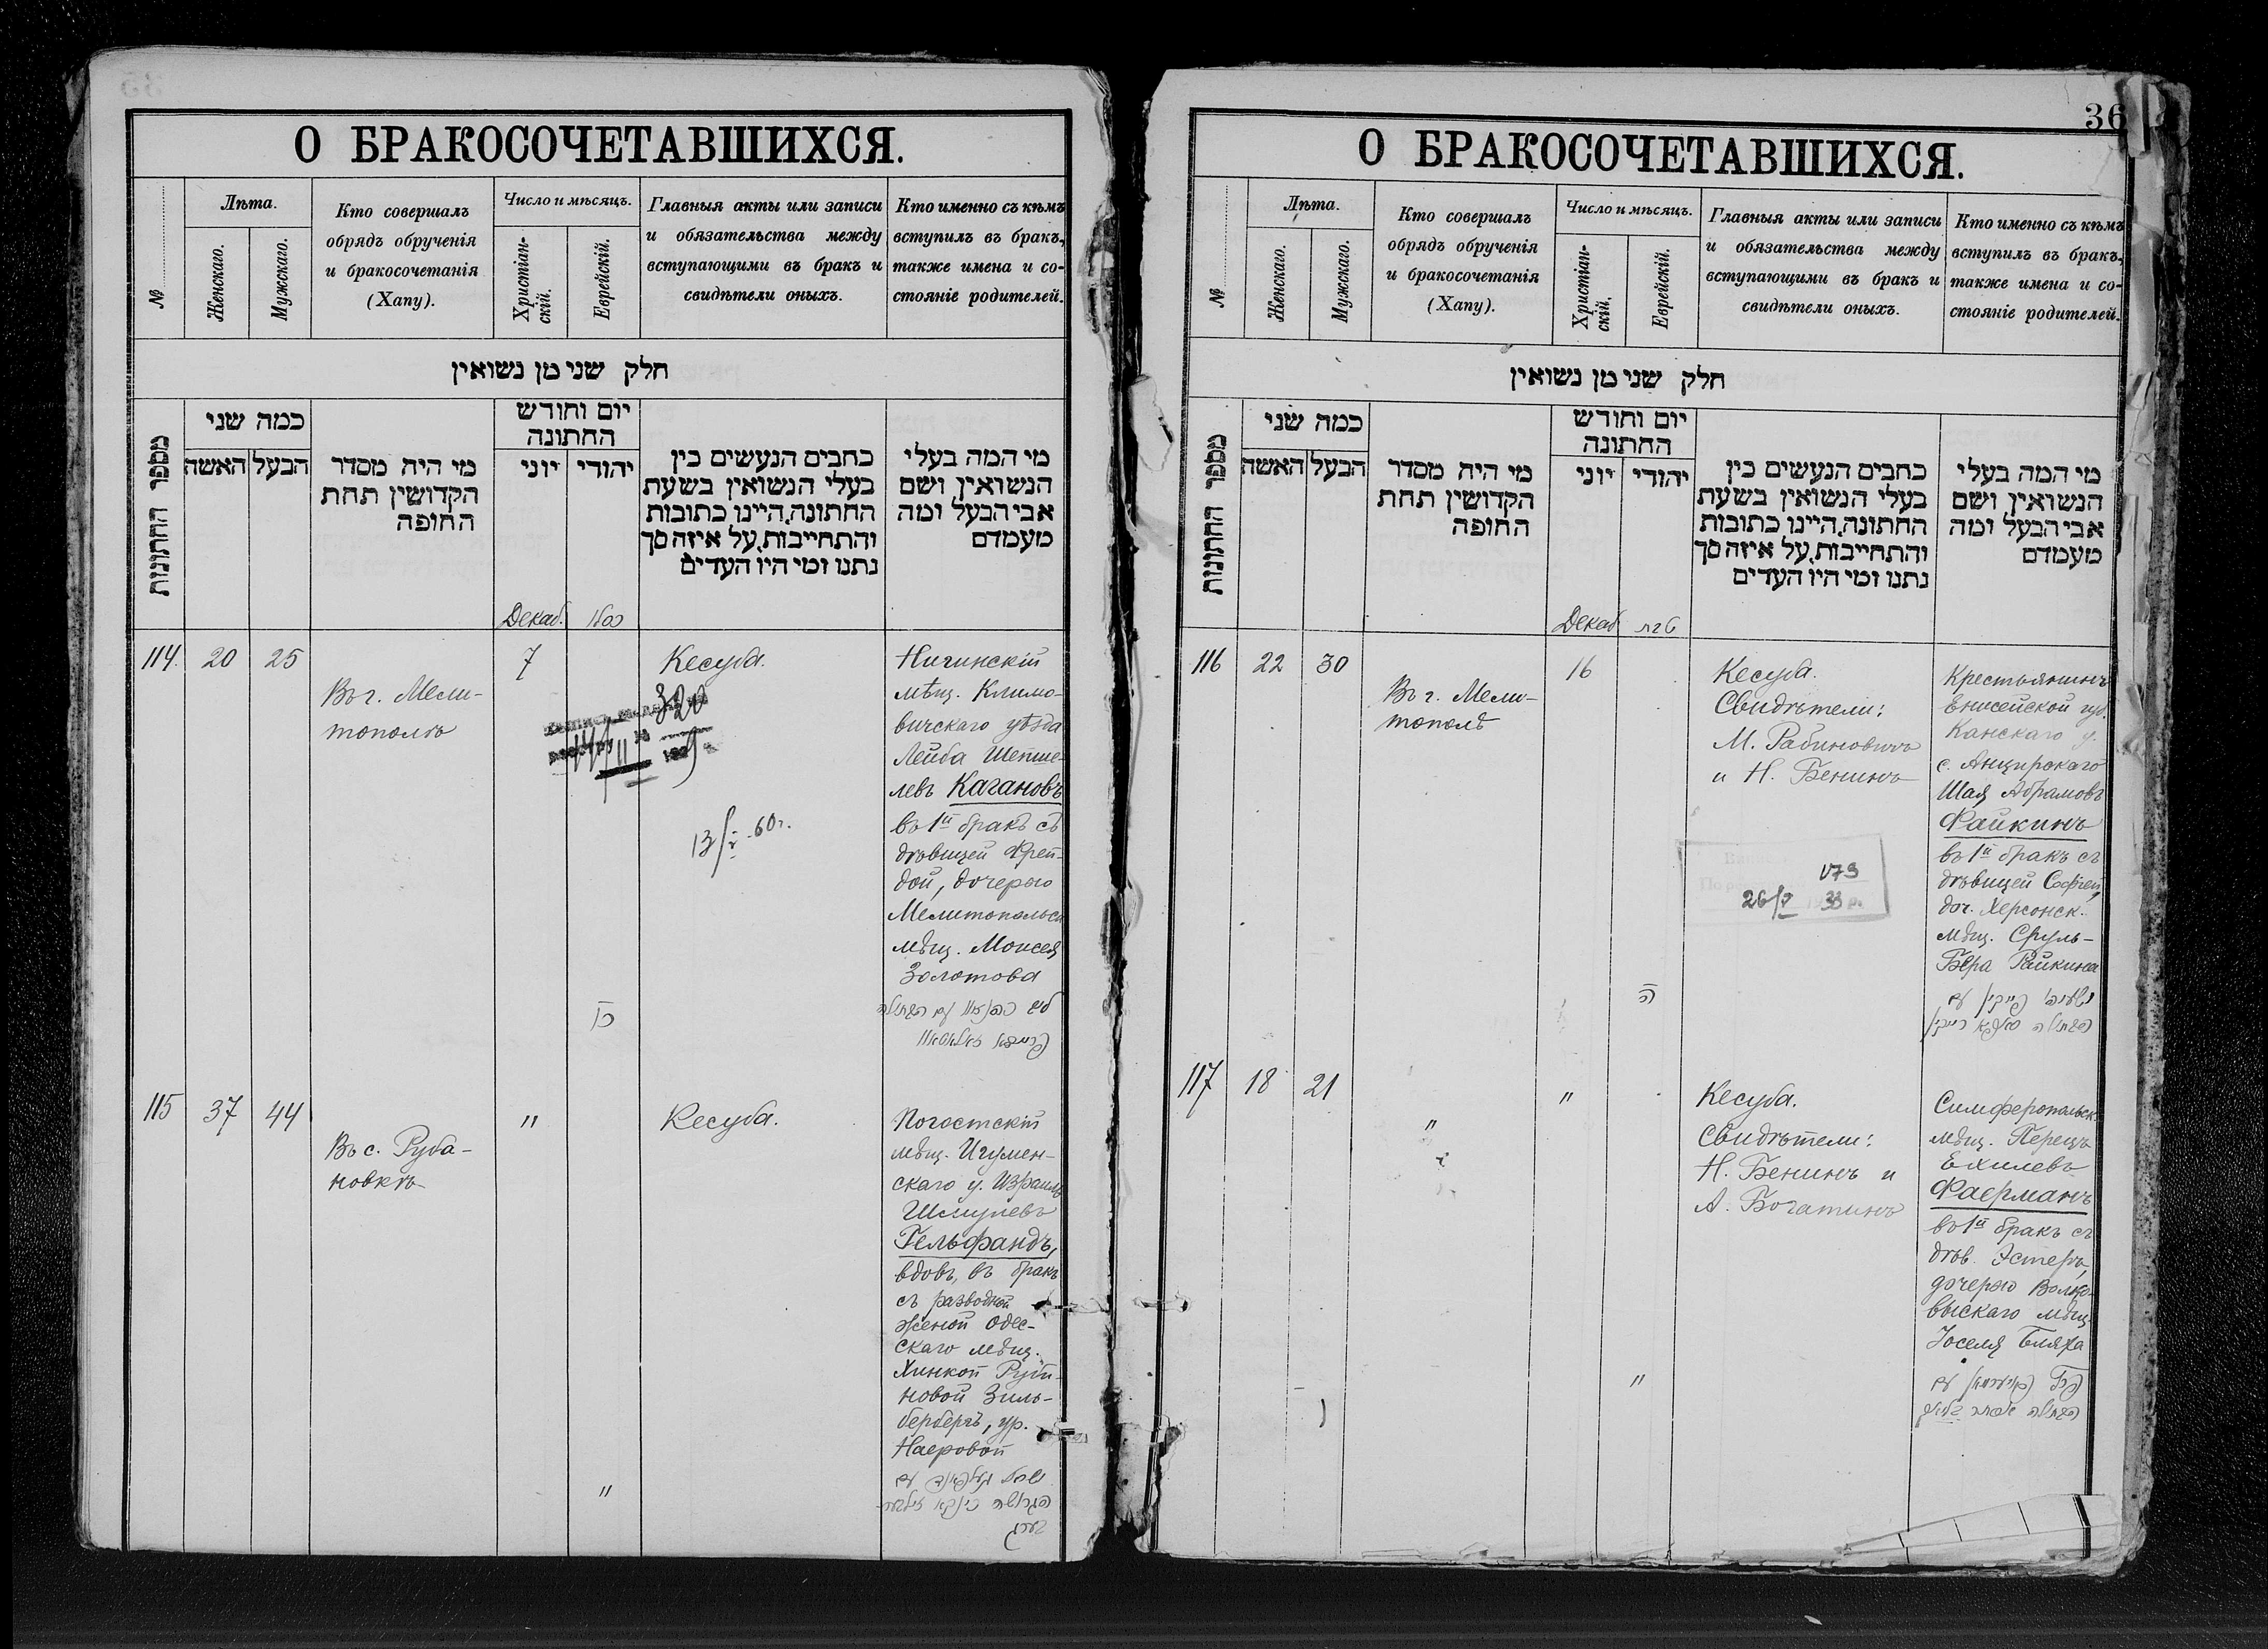 О БРАКОСОЧЕТАВШИХСЯ.
№
Лѣта.
Женскаго.
Мужскаго.
Кто совершалъ
обрядъ обрученія
и бракосочетанія
(Хапу).
Число и мѣсяцъ.
Христіан-
скій.
Еврейскій.
Главныя акты или записи
и обязательства между
вступающими въ бракъ и
свидѣтели оныхъ.
Кто именно съ кѣмъ
вступилъ въ бракъ,
также имена и со-
стояніе родителей.
חלק שני מן נשואין
מספר החתונות
כמה שני
האשה
הבעל
מי היה מסדר
הקדושין תחת
החופה
יום וחודש
החתונה
יוני
יהודי
כתבים הנעשים בין
בעלי הנשואין בשעת
החתונה, היינו כתובות
והתחייבות, על איזה סך
נתנו ומי היו העדים
מי המה בעלי
הנשואין ושם
אבי הבעל ומה
מעמדם
Декаб. כסלו
114. 20 25
Въ г. Мели-
тополѣ
7
כן
Кесуба.
320
13/ 60 г.
Ничинскій
мѣщ. Климо-
вичскаго уѣзда
Лейба Шепше-
левъ Кагановъ
въ 1й бракъ съ
дѣвицей Фрей-
дой, дочерью
Мелитопольск
мѣщ. Моисея
Золотова
עם הבתולה
115 37 44
Въ с. Руба-
новкѣ
"
"
Кесуба.
Погостскій
мѣщ. Игумен-
скаго у. Израиль
Шмулевъ
Гельфандъ,
вдовъ, въ бракъ
съ разводной
женой Одес-
скаго мѣщ.
Хинкой Руви-
новой Зиль-
бербергъ, ур.
Наеровой
ישראל געלפאנד עם
הגרושה חינקא זילבער-
בערג
36
О БРАКОСОЧЕТАВШИХСЯ.
№
Лѣта.
Женскаго.
Мужскаго.
Кто совершалъ
обрядъ обрученія
и бракосочетанія
(Хапу).
Число и мѣсяцъ.
Христіан-
скій.
Еврейскій.
Главныя акты или записи
и обязательства между
вступающими въ бракъ и
свидѣтели оныхъ.
Кто именно съ кѣмъ
вступилъ въ бракъ,
также имена и со-
стояніе родителей.
חלק שני מן נשואין
מספר החתונות
כמה שני
האשה
הבעל
מי היה מסדר
הקדושין תחת
החופה
יום וחודש
החתונה
יוני
יהודי
כתבים הנעשים בין
בעלי הנשואין בשעת
החתונה, היינו כתובות
והתחייבות, על איזה סך
נתנו ומי היו העדים
מי המה בעלי
הנשואין ושם
אבי הבעל ומה
מעמדם
Декаб טבת
116 22 30
Въ г. Мели-
тополѣ
16
ה
Кесуба.
Свидѣтели:
М. Рабиновичъ
и Н. Бенинъ
173
26/V 33 р.
Крестьянинъ
Енисейской губ.
Канскаго у.
с. Анцирскаго
Шая Абрамовъ
Файкинъ
въ 1й бракъ съ
дѣвицей Софіей,
доч. Херсонск.
мѣщ. Сруль-
Бера Райкина
ישעיהו פייקין עם
הבתולה רייקין
117 18 21
"
"
"
Кесуба.
Свидѣтели:
Н. Бенинъ и
А. Богатинъ
Симферопольск
мѣщ. Перецъ
Ехилевъ
Фаерманъ
въ 1й бракъ съ
дѣв. Эстеръ,
дочерью Волко-
выскаго мѣщ.
Іоселя Бляха
פרץ פאיערמאן עם
הבתולה אסתר בלאך